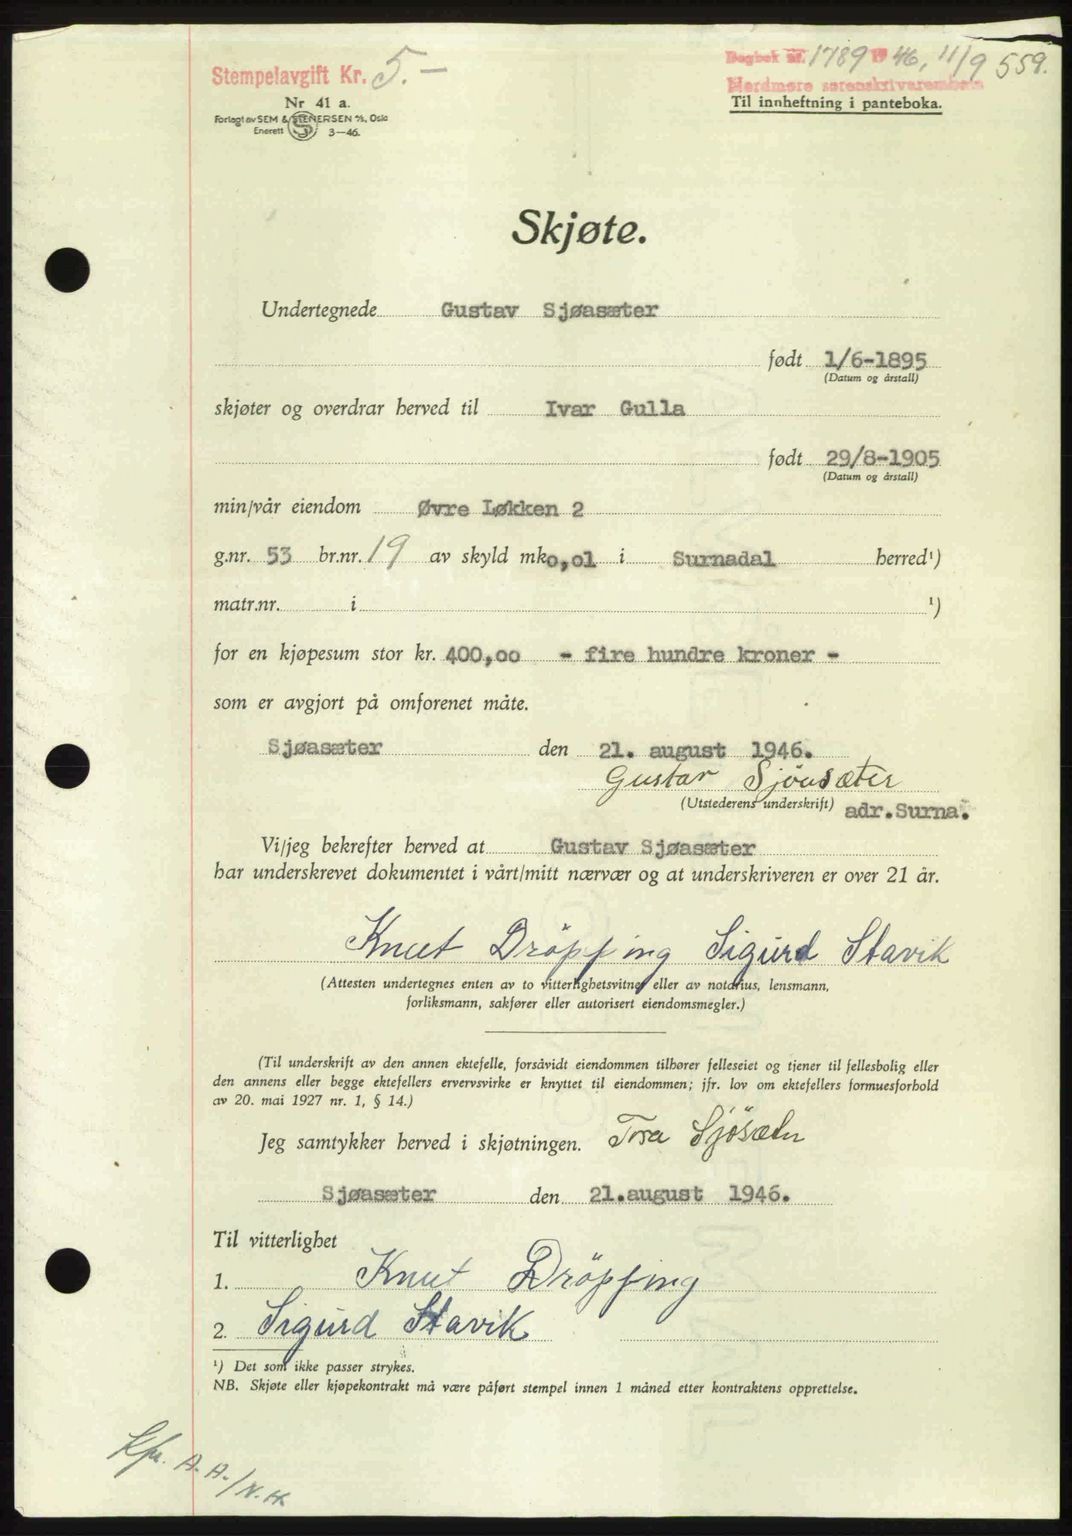 Stempelavgift Kr. 5.—
Dagbok nr. 1789 19 46, 11/9 559.
Nordmøre sorenskriverembete
Nr 41 a.
Til innheftning i panteboka.
Forlagt av SEM & STENERSEN A/S, Oslo
Enerett S 3—46.
Skjøte.
Undertegnede Gustav Sjøasæter
født 1/6-1895
(Datum og årstall)
skjøter og overdrar herved til Ivar Gulla
født 29/8-1905
(Datum og årstall)
min/vår eiendom Øvre Løkken 2
g.nr. 53 br.nr. 19 av skyld mk o,ol i Surnadal herred¹)
matr.nr. i ¹)
for en kjøpesum stor kr. 400,oo - fire hundre kroner -
som er avgjort på omforenet måte.
Sjøasæter den 21. august 1946.
Gustav Sjöasæter
(Utstederens underskrift) adr.Surna.
Vi/jeg bekrefter herved at Gustav Sjøasæter
har underskrevet dokumentet i vårt/mitt nærvær og at underskriveren er over 21 år.
Knut Dröpping Sigurd Stavik
(Attesten undertegnes enten av to vitterlighetsvitner eller av notarius, lensmann,
forliksmann, sakfører eller autorisert eiendomsmegler.)
(Til underskrift av den annen ektefelle, forsåvidt eiendommen tilhører felleseiet og tjener til fellesbolig eller
den annens eller begge ektefellers ervervsvirke er knyttet til eiendommen; jfr. lov om ektefellers formuesforhold
av 20. mai 1927 nr. 1, § 14.)
Jeg samtykker herved i skjøtningen. Tora Sjösæter
Sjøasæter den 21.august 1946.
Til vitterlighet
1. Knut Dröpping
2. Sigurd Stavik
¹) Det som ikke passer strykes.
NB. Skjøte eller kjøpekontrakt må være påført stempel innen 1 måned etter kontraktens opprettelse.
A. A. / N. H.